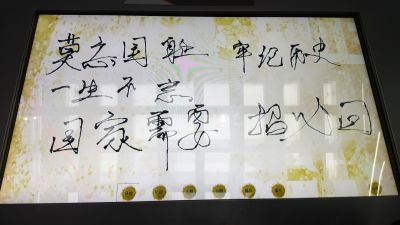 莫忘国耻 牢记历史
一生不忘
国家需要 招必回